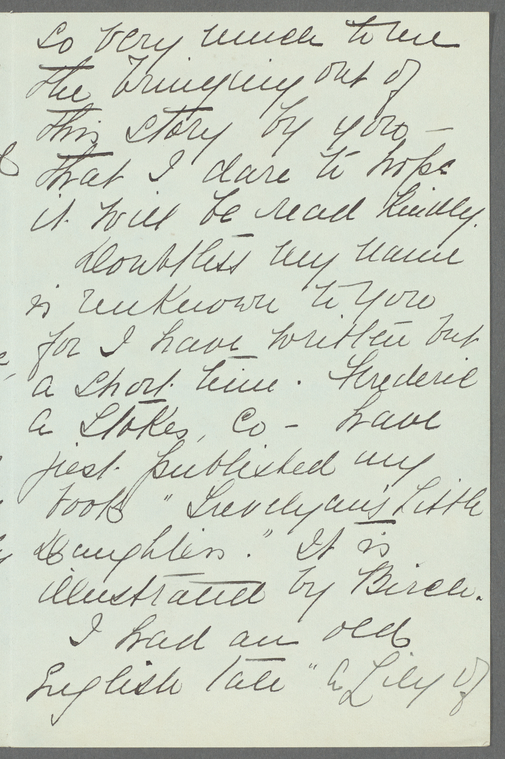 so very much to me
the bringing out of
this story by you —
that I dare to hope
it will be read kindly.
Doubtless my name
is unknown to you
for I have written but
a short time. Frederic
A Stokes, Co — have
just published my
book "Trevelyan's Little
Daughters." It is
illustrated by Birch.
I had an old
English tale "A Lily of